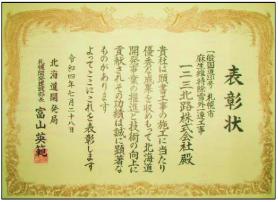 表彰状
一般国道5号 札幌市
麻生維持除雪外一連工事
一二三北路株式会社 殿
貴社は頭書工事の施工に当たり
優秀な成果を収めもって北海道
開発事業の推進と技術の向上に
貢献されその功績は誠に顕著な
ものがあります
よってここにこれを表彰します
令和四年七月二十八日
北海道開発局
札幌開発建設部長 富山英範